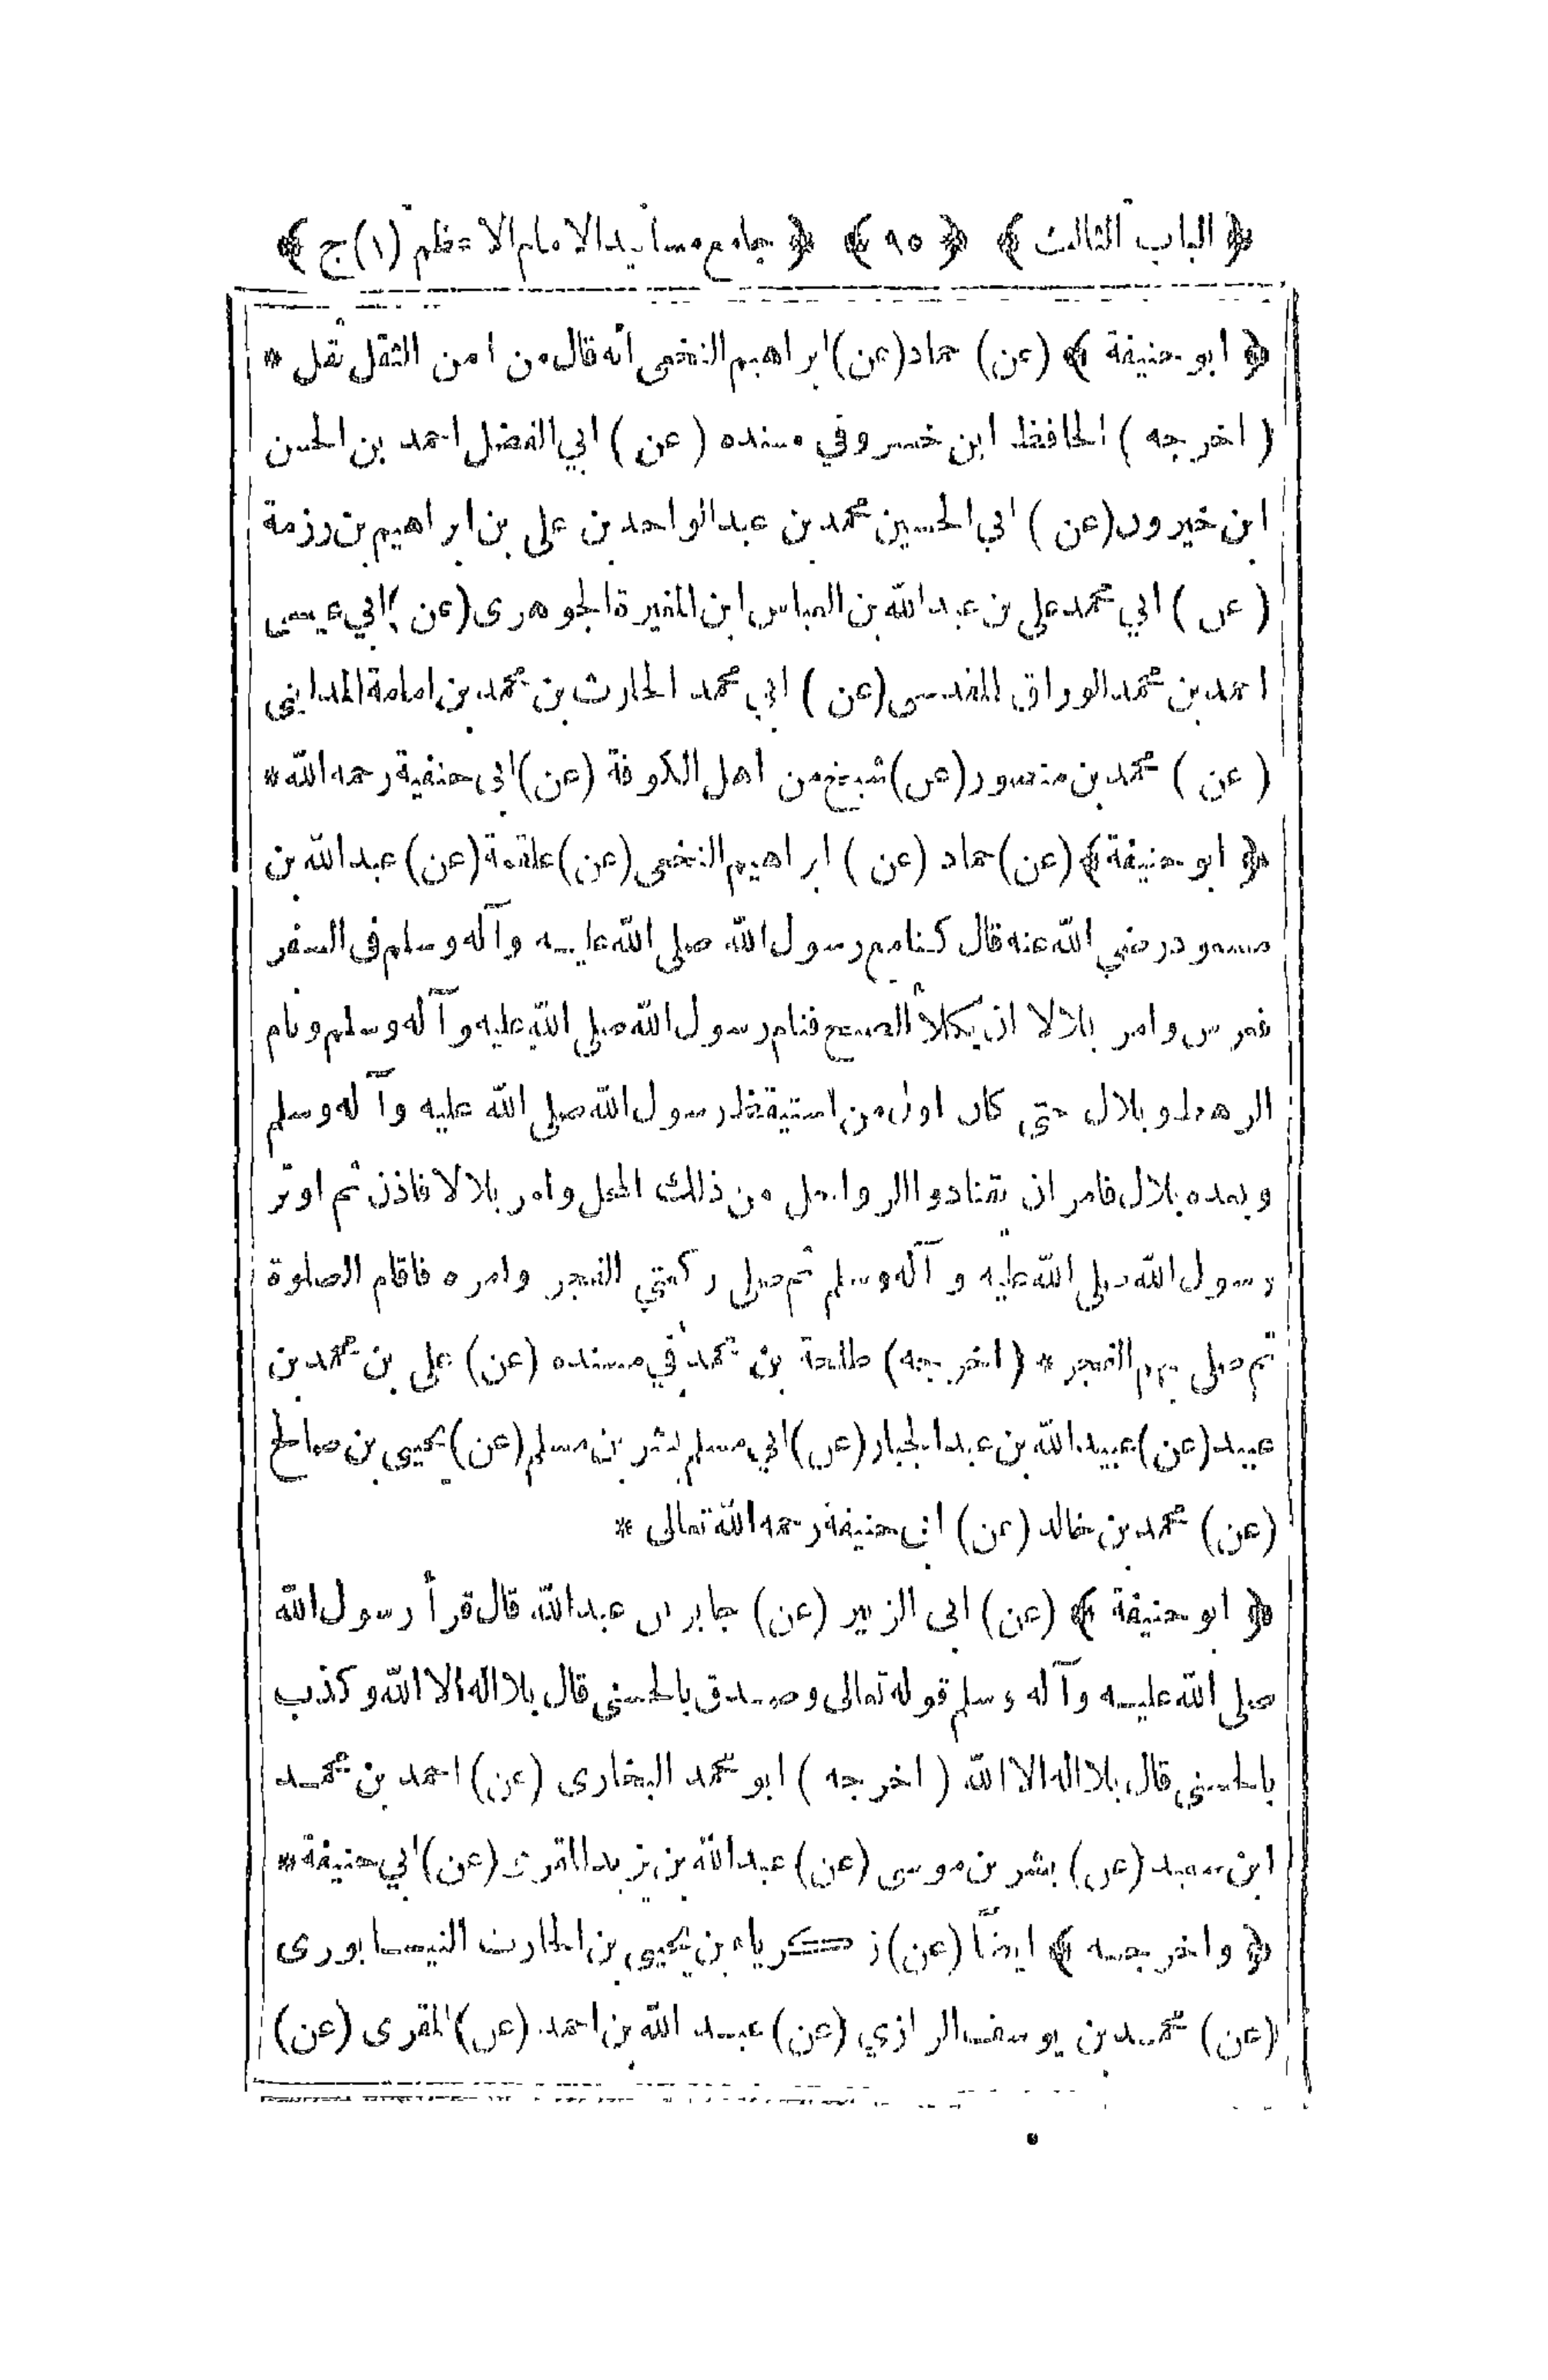 ﴿ الباب الثالث ﴾ ﴿ ٩٥ ﴾ ﴿ جامع مسانيد الامام الاعظم (١) ج ﴾
﴿ ابو حنيفة ﴾ (عن) حماد (عن) ابراهيم النخعى انه قال من امن الثقل ثقل *
( اخرجه ) الحافظ ابن خسرو في مسنده ( عن ) ابي الفضل احمد بن الحسن
ابن خيرون (عن ) ابي الحسين محمد بن عبد الواحد بن على بن ابراهيم بن رزمة
( عن ) ابي محمد على بن عبد الله بن العباس ابن المغيرة الجوهرى (عن ) ابي عيسى
احمد بن محمد الوراق المقدسى (عن ) ابي محمد الحارث بن محمد بن امامة المدايني
( عن ) محمد بن منصور (عن) شيخ من اهل الكوفة (عن) ابى حنفية رحمه الله *
﴿ ابو حنيفة ﴾ (عن) حماد (عن ) ابراهيم النخعى (عن) علقمة (عن) عبد الله بن
مسعود رضي الله عنه قال كنا مع رسول الله صلى الله عليه وآله وسلم فى السفر
فعرس وامر بلالا ان يكلأ الصبح فنام رسول الله صلى الله عليه وآله وسلم ونام
الرهط وبلال حتى كان اول من استيقظ رسول الله صلى الله عليه وآله وسلم
وبعده بلال فامر ان يقتادوا الرواحل من ذلك المحل وامر بلالا فاذن ثم اوتر
رسول الله صلى الله عليه وآله وسلم ثم صلى ركعتي الفجر وامره فاقام الصلوة
ثم صلى بهم الفجر * ( اخرجه) طلحة بن محمد في مسنده (عن) على بن محمد بن
عبيد (عن) عبيد الله بن عبد الجبار (عن) ابي مسلم بشر بن مسلم (عن) يحيى بن صالح
(عن) محمد بن خالد (عن) ابى حنيفة رحمه الله تعالى *
﴿ ابو حنيفة ﴾ (عن) ابى الزبير (عن) جابر بن عبد الله قال قرأ رسول الله
صلى الله عليه وآله وسلم قوله تعالى وصدق بالحسنى قال بلا اله الا الله وكذب
بالحسنى قال بلا اله الا الله ( اخرجه ) ابو محمد البخارى (عن) احمد بن محمد
ابن سعيد (عن) بشر بن موسى (عن) عبد الله بن يزيد المقرى (عن) ابي حنيفة *
﴿ واخرجه ﴾ ايضاً (عن) زكرياء بن يحيى بن الحارث النيسابورى
(عن) محمد بن يوسف الرازي (عن) عبد الله بن احمد (عن) المقرى (عن)